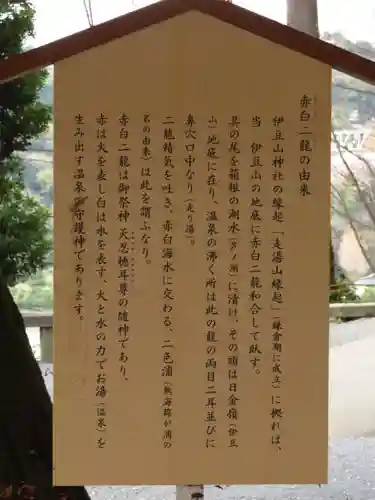 赤白二龍の由来
伊豆山神社の縁起「走湯山縁起」（鎌倉期に成立）に拠れば、
当　伊豆山の地底に赤白二龍和合して臥す。
其の尾を箱根の湖水（芦ノ湖）に漬け、その頭は日金嶺（伊豆
山）地底に在り、温泉の沸く所は此の龍の両目二耳並びに
鼻吹口中なり（走り湯）。
二龍精気を吐き、赤白海水に交わる、二色浦（熱海錦が浦の
名の由来）は此を謂ふなり。
赤白二龍は御祭神　天忍穂耳尊の随神であり、
赤は火を表し白は水を表す、火と水の力でお湯（温泉）を
生み出す温泉の守護神であります。